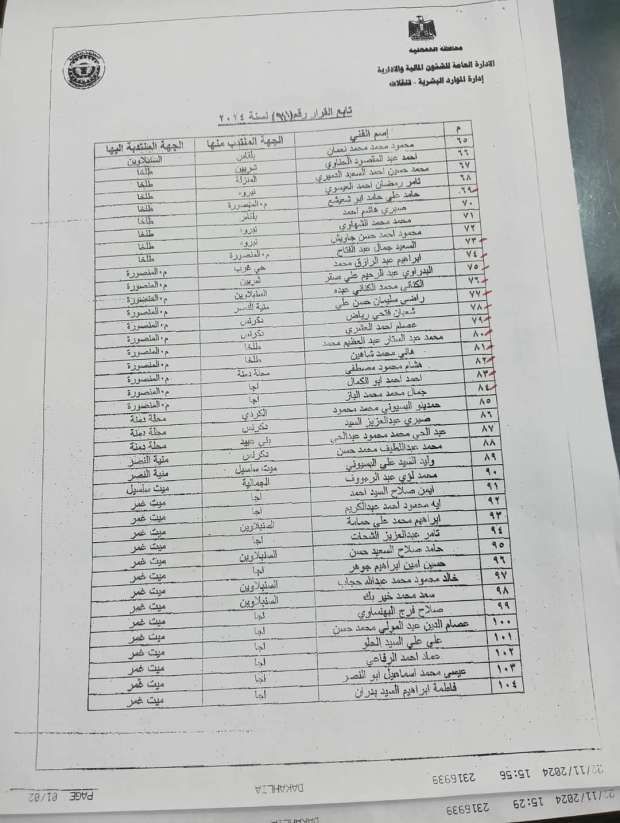 محافظة الدقهلية
الادارة العامة للشئون المالية والادارية
إدارة الموارد البشرية - تنقلات
تابع القرار رقم ( ) لسنة ٢٠٢٤
م إسم الفني الجهة المنتدب منها الجهة المنتدب اليها
٦٥ محمود محمد محمد نعمان بلقاس السنبلاوين
٦٦ احمد عبد المقصود شربين طلخا
٦٧ محمد حسين احمد السعيد المنزلة طلخا
٦٨ تامر رمضان احمد العيسوي نبروه طلخا
٦٩ حامد علي حامد ابو م.المنصورة طلخا
٧٠ صبري هاشم احمد بلقاس طلخا
٧١ محمد محمد الشهاوي نبروه طلخا
٧٢ محمود احمد حسن جاويش نبروه طلخا
٧٣ السعيد جمال عبد الفتاح م.المنصورة طلخا
٧٤ ابراهيم عبد الرازق محمد حي غرب م.المنصورة
٧٥ البدراوي عبد الرحيم علي صقر شربين م.المنصورة
٧٦ الكناني محمد الكناني عبده السنبلاوين م.المنصورة
٧٧ راضي سليمان حسن علي منية النصر م.المنصورة
٧٨ شعبان فتحي رياض دكرنس م.المنصورة
٧٩ عصام احمد دكرنس م.المنصورة
٨٠ محمد عبد الستار عبد العظيم محمد طلخا م.المنصورة
٨١ هاني محمد شاهين طلخا م.المنصورة
٨٢ هشام محمود مصطفي محلة دمنة م.المنصورة
٨٣ احمد احمد ابو الكمال اجا م.المنصورة
٨٤ جمال محمد محمد الباز اجا م.المنصورة
٨٥ حمدينو البسيوني محمد محمود الكردي محلة دمنة
٨٦ صبري عبدالعزيز السيد دكرنس محلة دمنة
٨٧ عبد الحي محمد محمود عبدالحي بني عبيد محلة دمنة
٨٨ محمد عبداللطيف محمد حسن دكرنس منية النصر
٨٩ وليد السيد علي البسيوني ميت سلسيل منية النصر
٩٠ محمد لؤي عبد الرءووف الجمالية ميت سلسيل
٩١ ايمن صلاح السيد احمد اجا ميت غمر
٩٢ ايه محمود احمد عبدالكريم اجا ميت غمر
٩٣ ابراهيم محمد علي حمامة السنبلاوين ميت غمر
٩٤ تامر عبدالعزيز الشحات اجا ميت غمر
٩٥ حامد صلاح السعيد حسن السنبلاوين ميت غمر
٩٦ حسين امين ابراهيم جوهر اجا ميت غمر
٩٧ خالد محمود محمد عبدالله حجاب السنبلاوين ميت غمر
٩٨ سعد محمد خير بك السنبلاوين ميت غمر
٩٩ صلاح فرج البهنساوي اجا ميت غمر
١٠٠ عصام الدين عبد المولي محمد حسن اجا ميت غمر
١٠١ علي علي السيد الحلو اجا ميت غمر
١٠٢ عماد احمد الرفاعي اجا ميت غمر
١٠٣ عيسي محمد اسماعيل ابو النصر اجا ميت غمر
١٠٤ فاطمة ابراهيم السيد بدران اجا ميت غمر
22/11/2024 15:56 2316939 DAKAHLIA PAGE 01/02
22/11/2024 15:29 2316939 DAKAHLIA